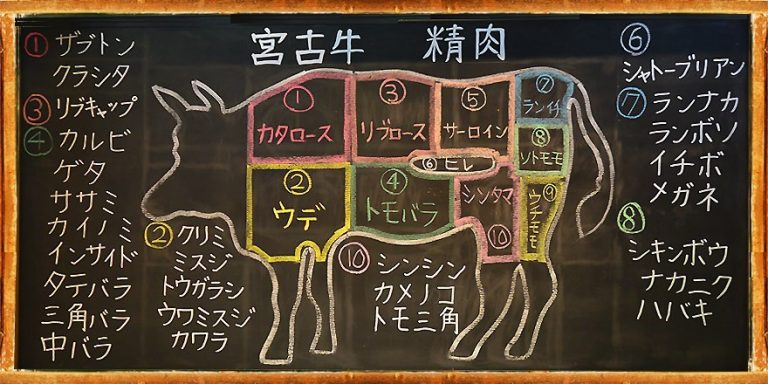 宮古牛 精肉
① ザブトン
クラシタ
③ リブキャップ
④ カルビ
ゲタ
ササミ
カイノミ
インサイド
タテバラ
三角バラ
中バラ
① カタロース
③ リブロース
⑤ サーロイン
⑦ ランイチ
⑧ ソトモモ
⑥ ヒレ
② ウデ
④ トモバラ
シンタマ ⑩
ウチモモ ⑨
② クリミ
ミスジ
トウガラシ
ウワミスジ
カワラ
⑩ シンシン
カメノコ
トモ三角
⑥
シャトーブリアン
⑦ ランナカ
ランボソ
イチボ
メガネ
⑧
シキンボウ
ナカニク
ハバキ